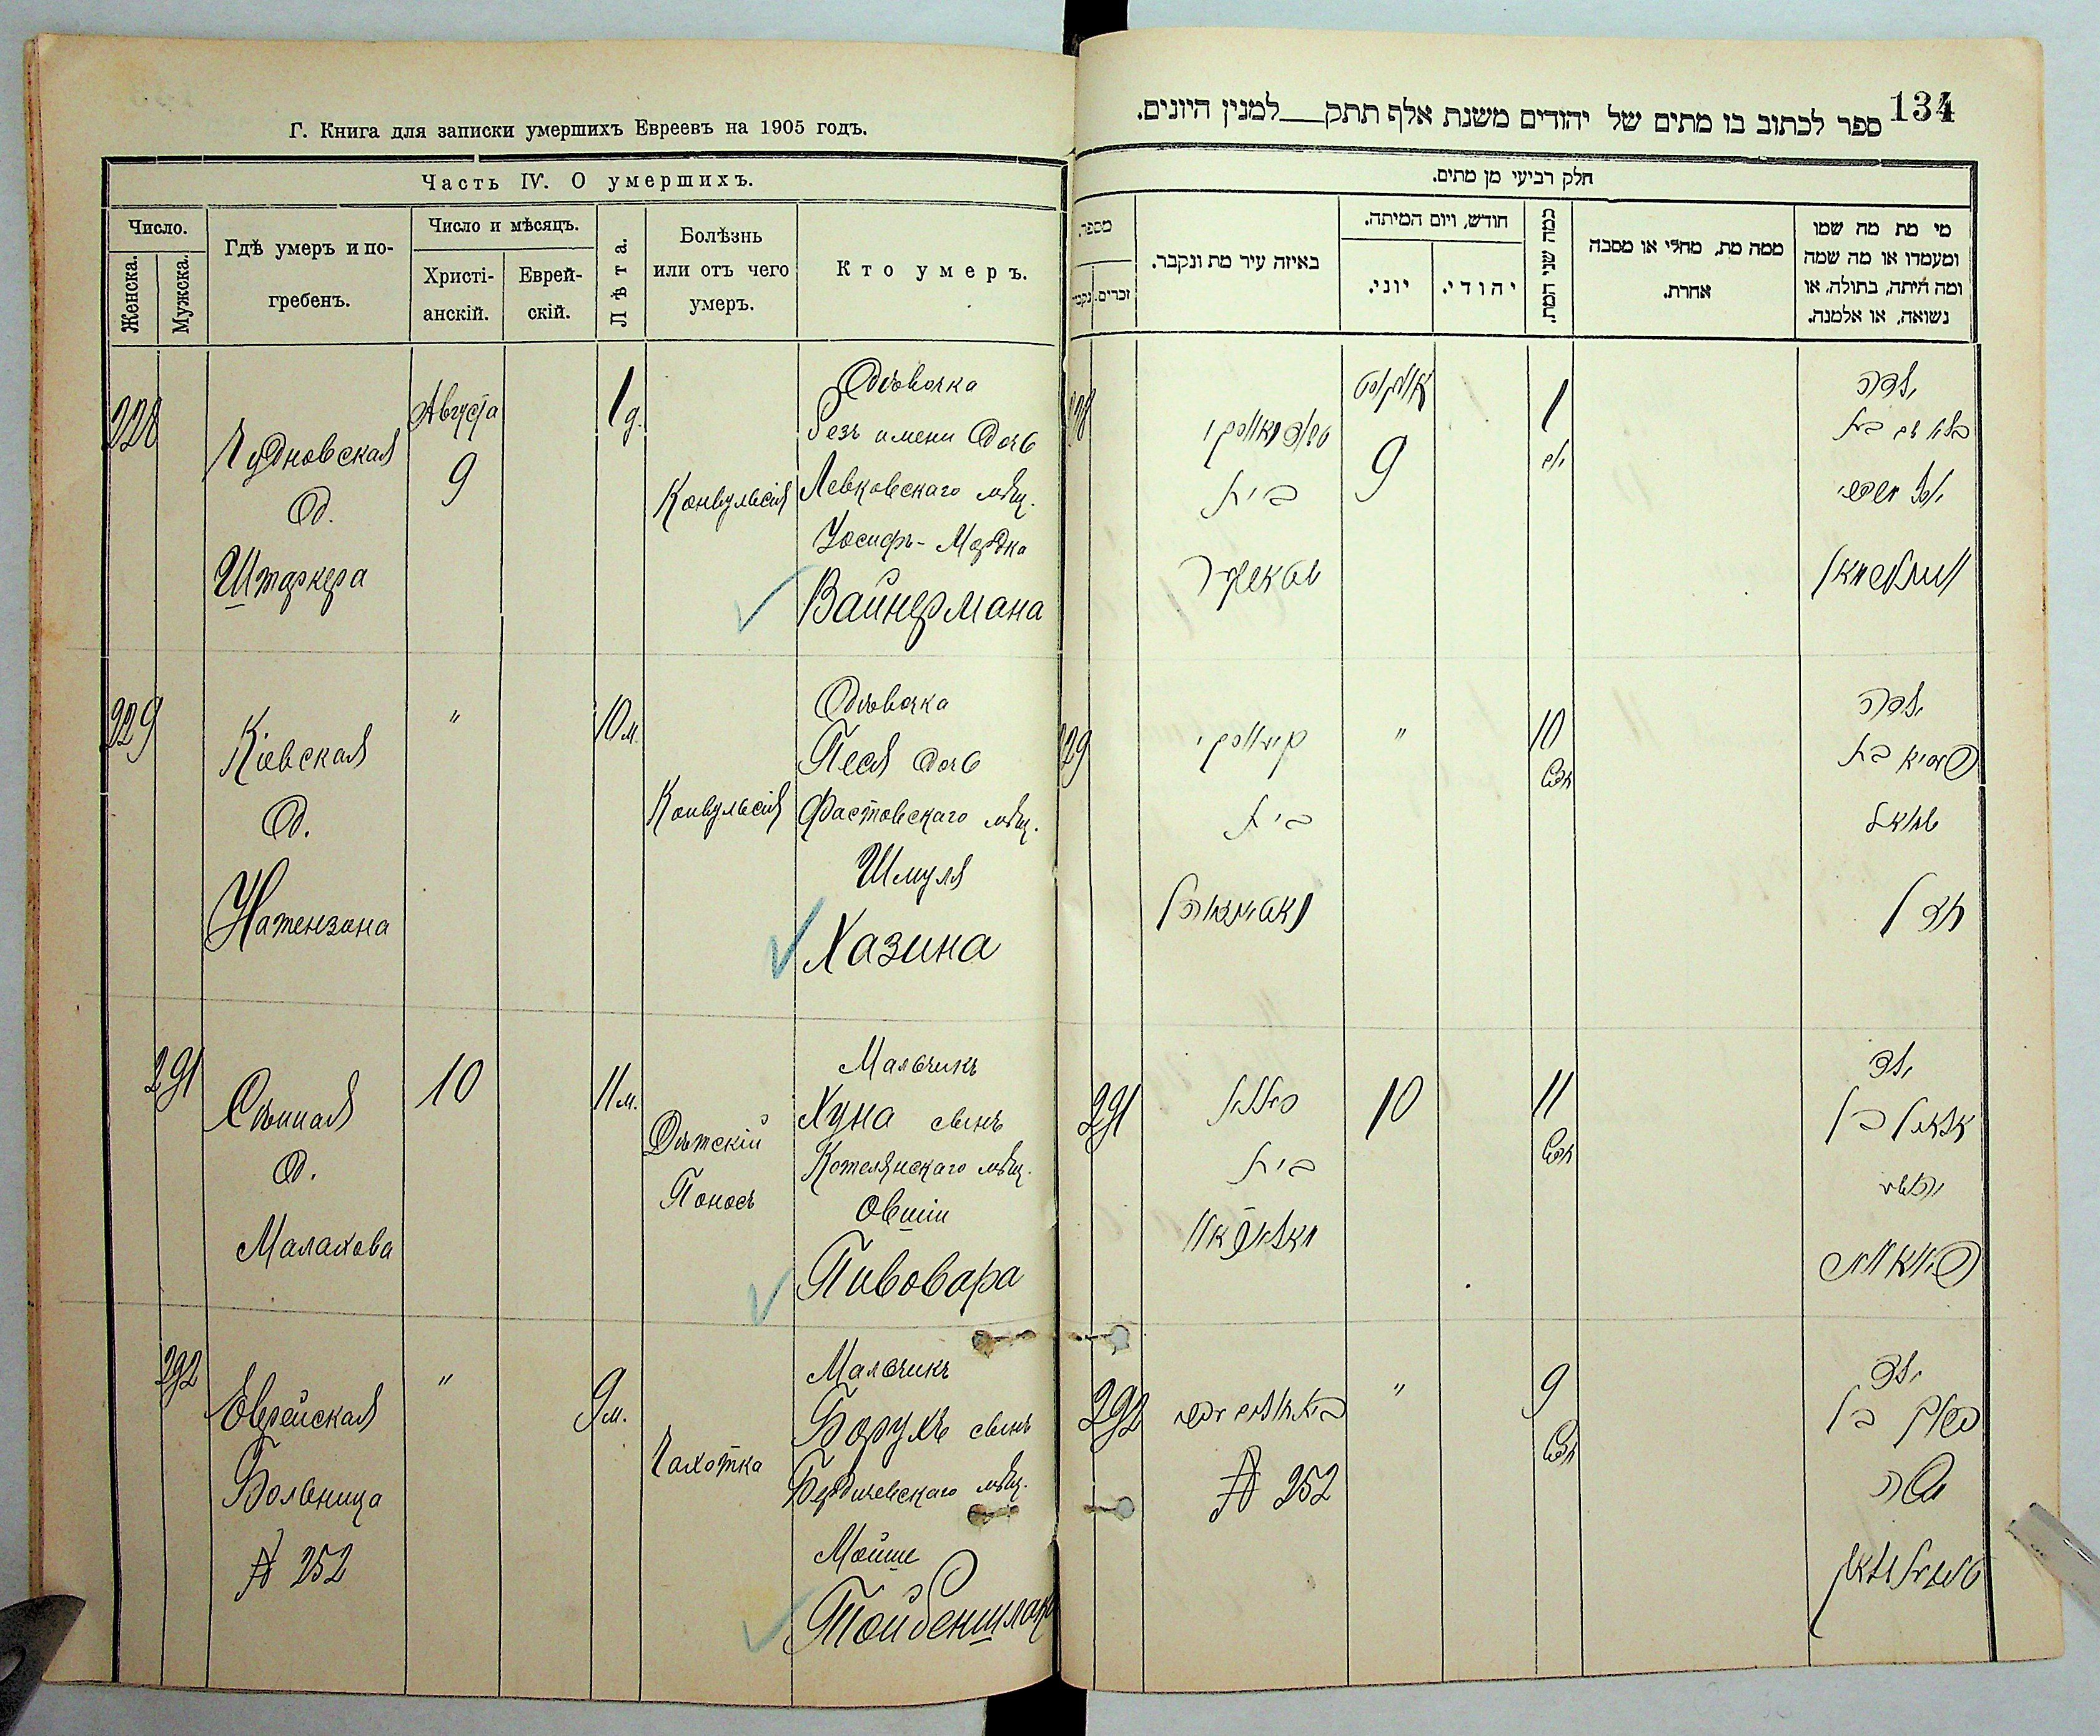 Г. Книга для записки умершихъ Евреевъ на 1905 годъ.
Часть IV. О умершихъ.
Число.
Женска.
Мужска.
Гдѣ умеръ и по-
гребенъ.
Число и мѣсяцъ.
Христі-
анскій.
Еврей-
скій.
Лѣта.
Болѣзнь
или отъ чего
умеръ.
Кто умеръ.
228
Чудновская
д.
Штаркера
Августа
9
1 д.
Конвульсія
Дѣвочка
безъ имени дочь
Левковскаго мѣщ.
Іосифъ-Мордка
Вайнермана
229
Кіевская
д.
Натензона
"
10 м.
Конвульсія
Дѣвочка
Песя дочь
Фастовскаго мѣщ.
Шмуля
Хазина
291
Сѣнная
д.
Малахова
10
11 м.
Дѣтскій
Поносъ
Мальчикъ
Хуна сынъ
Котелянскаго мѣщ.
Овшіи
Пивовара
292
Еврейская
Больница
№ 252
"
9 м.
Чахотка
Мальчикъ
Борухъ сынъ
Бердичевскаго мѣщ.
Мойше
Тойбеншлака
134
ספר לכתוב בו מתים של יהודים משנת אלף תתק__למנין היונים.
חלק רביעי מן מתים.
מספר.
נקבו
זכרים.
באיזה עיר מת ונקבר.
חודש, ויום המיתה.
יוני.
יהודי.
כמה שני המת.
ממה מת, מחלי או מסבה
אחרת.
מי מת מה שמו
ומעמדו או מה שמה
ומה היתה, בתולה, או
נשואה, או אלמנה.
בית
9
1
ילדה
229
בית
"
10
חדש
ילדה
בת
שמואל
חזין
291
בית
10
11
חדש
ילד
בן
292
№ 252
"
9
חדש
ילד
ברוך בן
משה